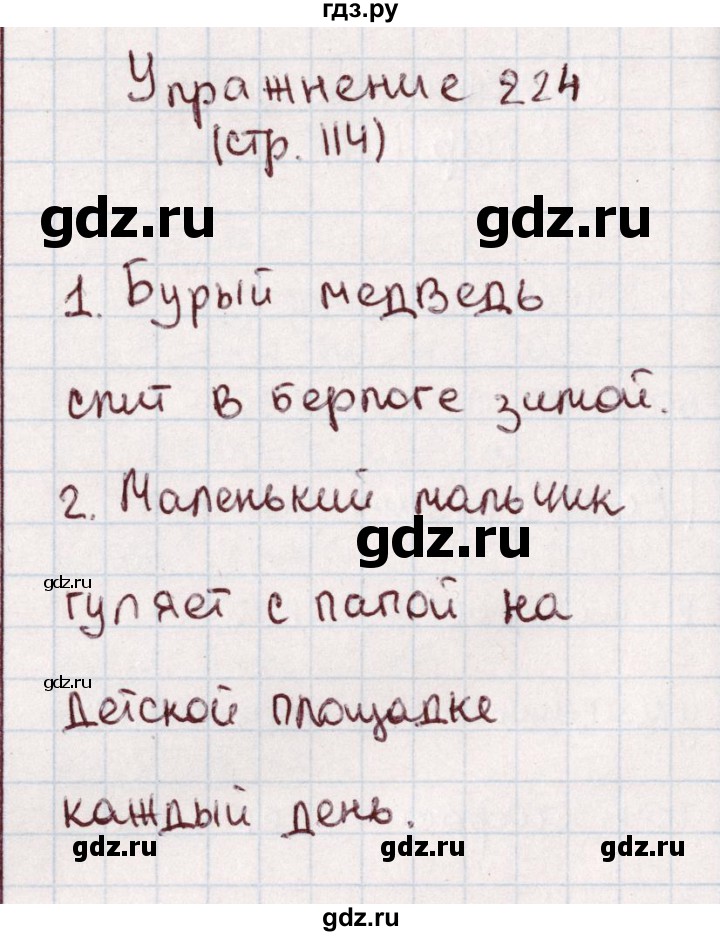 гдз.ру
Упражнение 224
(стр. 114)
gdz.ru gdz.ru
1. Бурый медведь
спит в берлоге зимой.
2. Маленький мальчик
gdz.ru
gdz.ru
гуляет с папой на
gdz.ru
детской площадке
каждый день.
gdz.ru gdz.ru gdz.ru
gdz.ru